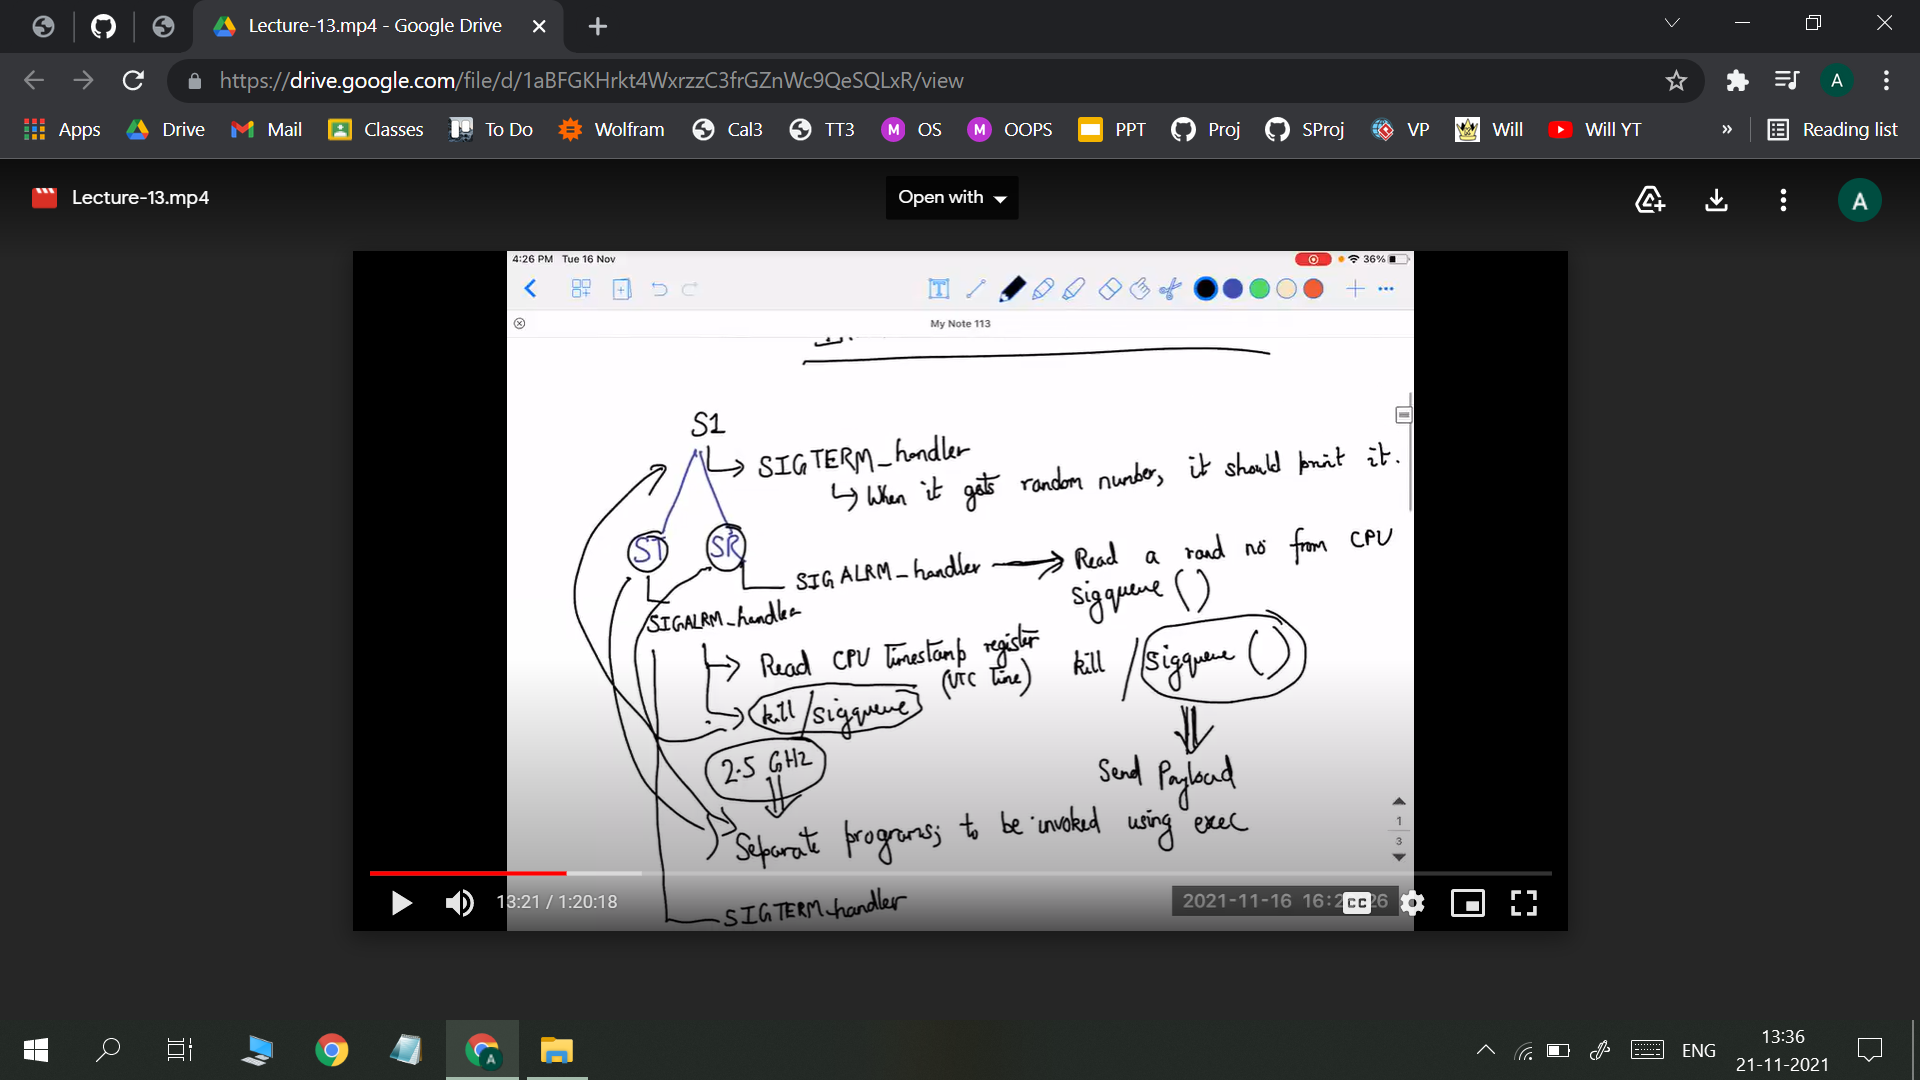 Lecture-13.mp4 - Google Drive
https://drive.google.com/file/d/1aBFGKHrkt4WxrzzC3frGZnWc9QeSQLxR/view
A
Apps Drive Mail Classes To Do Wolfram Cal3 TT3 M OS M OOPS PPT Proj SProj VP Will Will YT » Reading list
Lecture-13.mp4
Open with
A
4:26 PM Tue 16 Nov
36%
My Note 113
S1
SIGTERM_handler
When it gets random number, it should print it.
ST
SR
SIGALRM_handler
Read a rand no from CPU
sigqueue ()
SIGALRM_handler
Read CPU timestamp register
(UTC time)
kill / sigqueue ()
kill / sigqueue
2.5 GHz
Send Payload
Separate programs; to be invoked using exec
1
3
SIGTERM_handler
13:21 / 1:20:18
2021-11-16 16:2
26
CC
A
ENG
13:36
21-11-2021